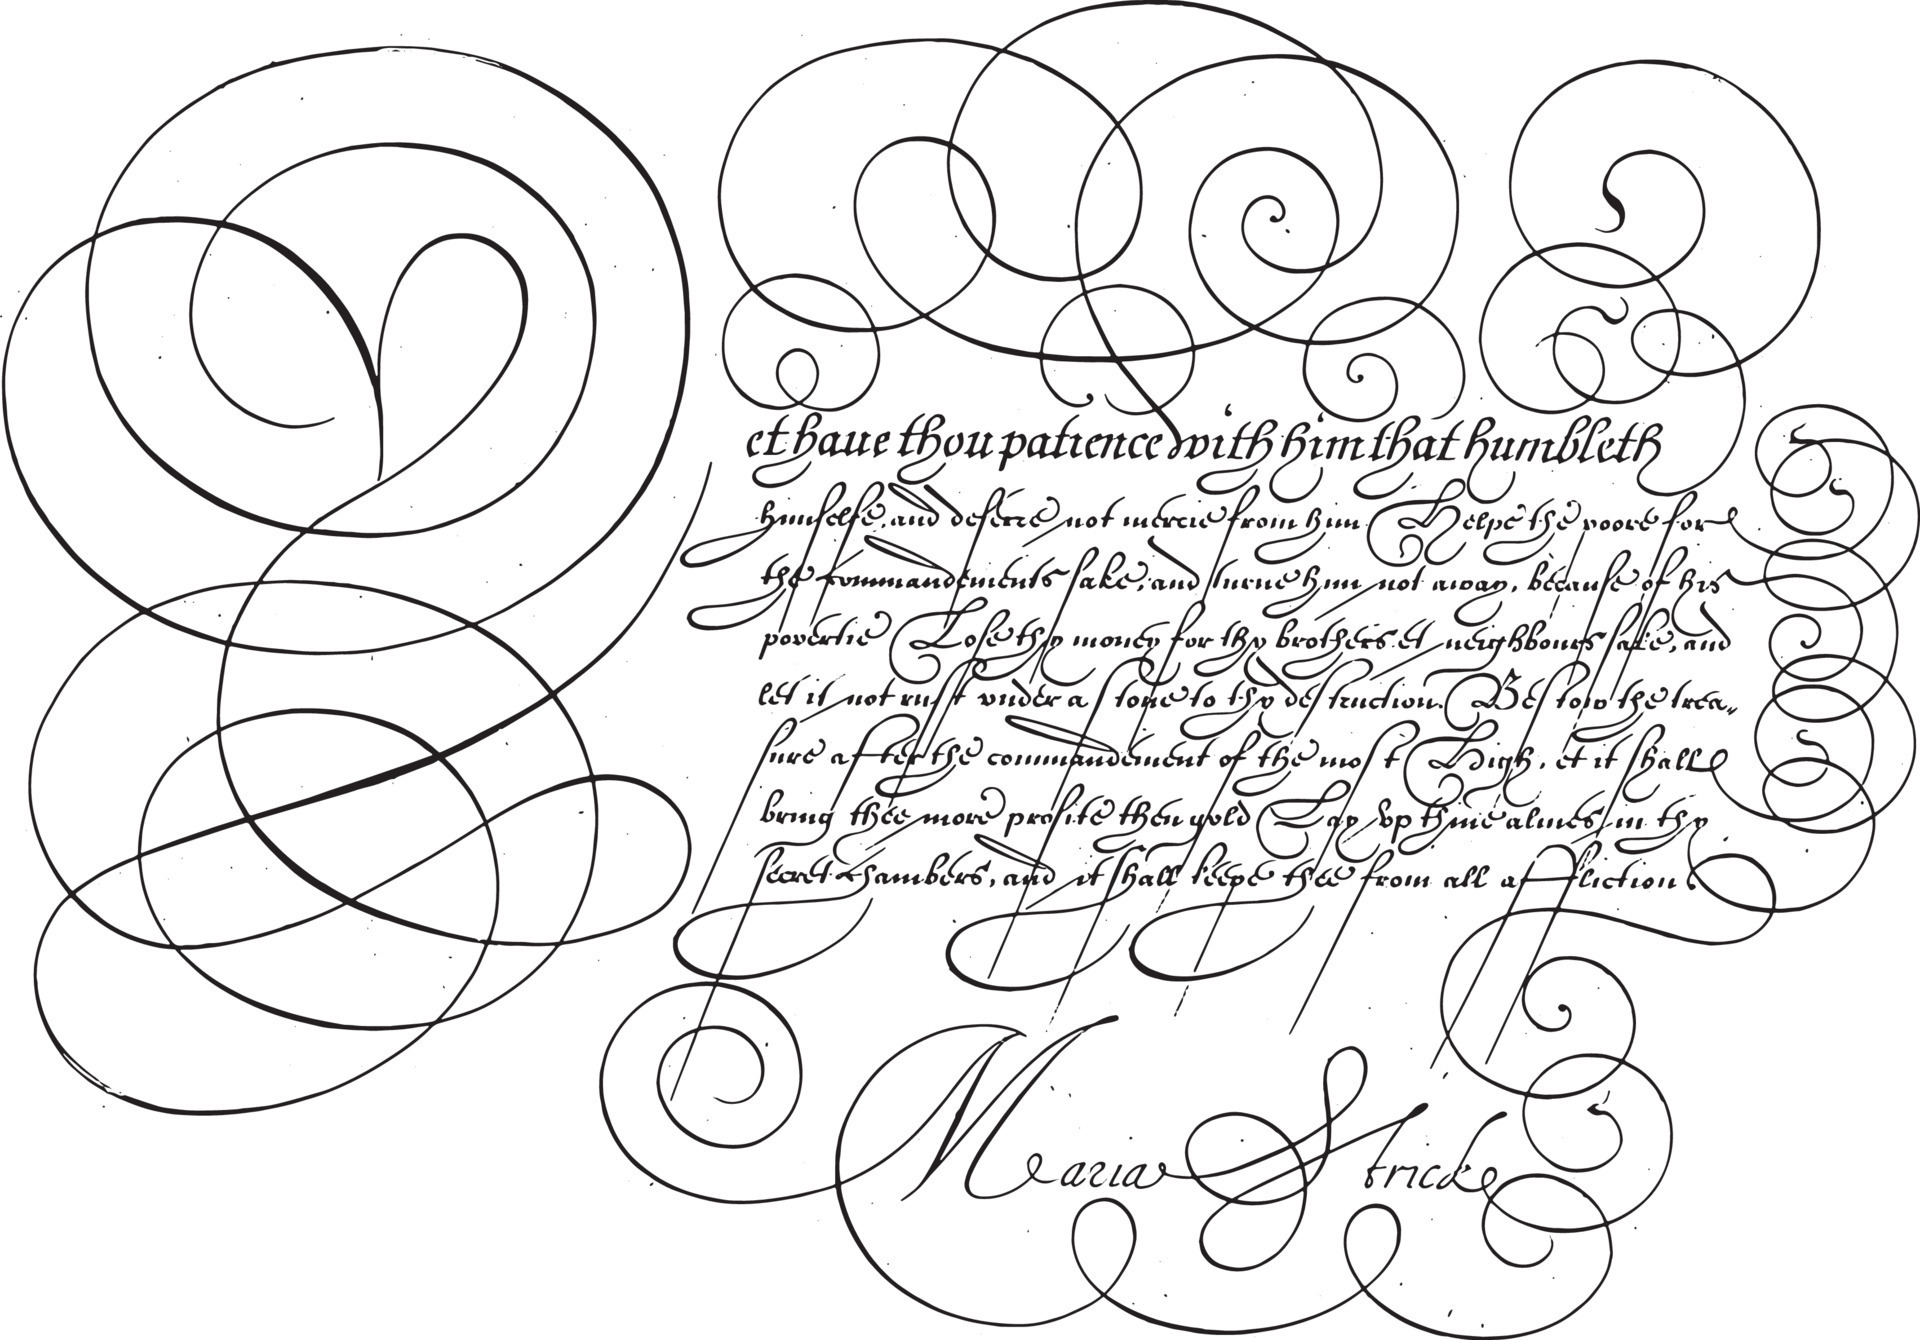 Yet haue thou patience with him that humbleth
himselfe, and deferre not mercie from him. Helpe the poore for
the commandements sake, and turne him not away, because of his
povertie. Lose thy money for thy brothers et neighbours sake, and
let it not rust vnder a stone to thy destruction. Bestow the trea„
sure after the commandement of the most High, et it shall
bring thee more profite then gold. Lay vp thine almes in thy
secret chambers, and it shall keepe thee from all affliction
Maria Strick